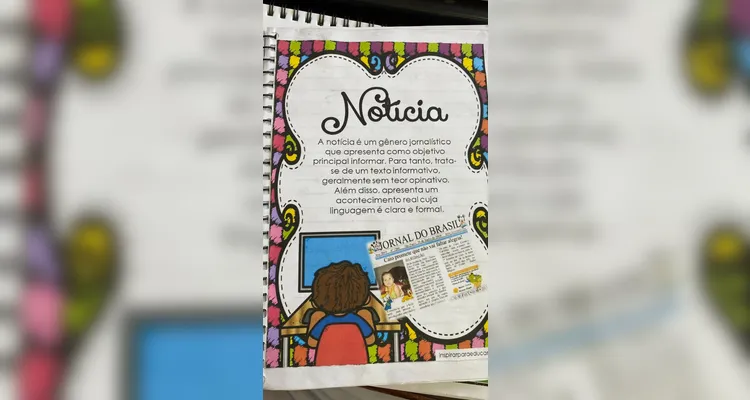 Notícia
A notícia é um gênero jornalístico
que apresenta como objetivo
principal informar. Para tanto, trata-
se de um texto informativo,
geralmente sem teor opinativo.
Além disso, apresenta um
acontecimento real cuja
linguagem é clara e formal.
JORNAL DO BRASIL
Cara promete que não vai faltar alegria!
inspirarparaeducar